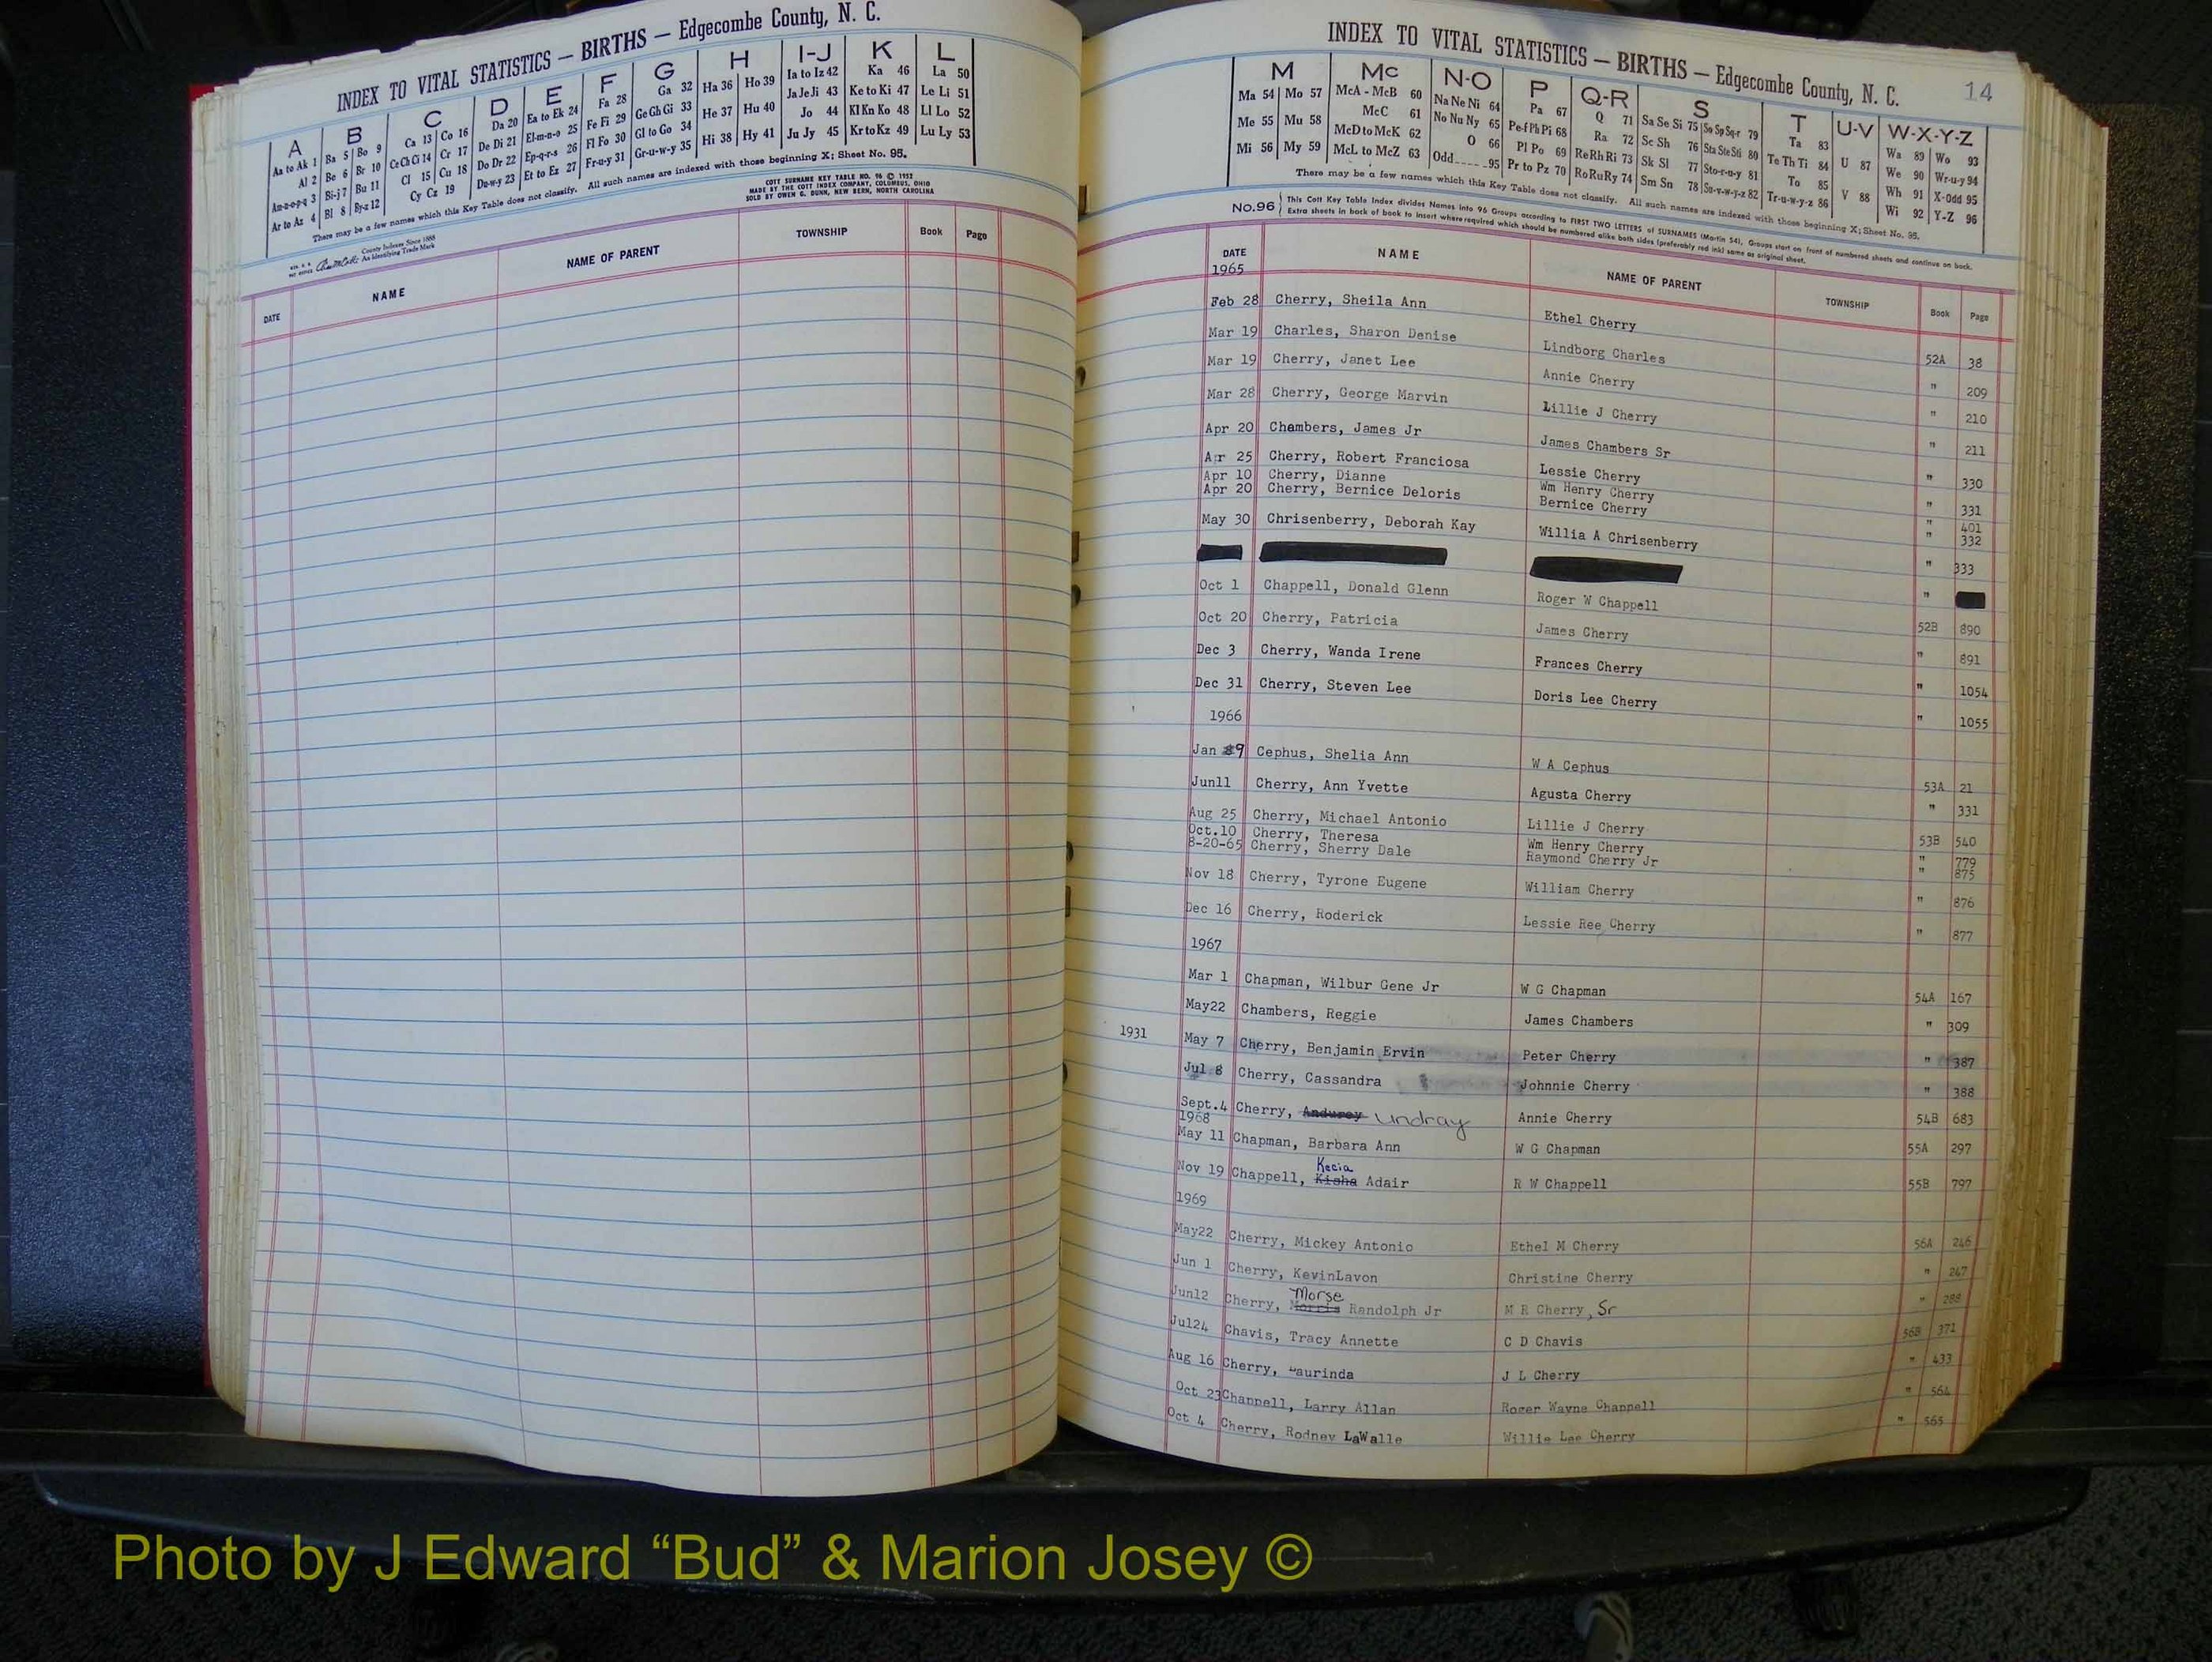 INDEX TO VITAL STATISTICS — BIRTHS — Edgecombe County, N. C.
A B C D E F G H I-J K L
Aa to Ak 1 Ba 5 Bo 9 Ca 13 Co 16 Da 20 Ea to Ek 24 Fa 28 Ga 32 Ha 36 Ho 39 Ia to Iz 42 Ka 46 La 50
Al 2 Be 6 Br 10 Ce Ch Ci 14 Cr 17 De Di 21 El-m-n-o 25 Fe Fi 29 Ge Gh Gi 33 He 37 Hu 40 Ja Je Ji 43 Ke to Ki 47 Le Li 51
Am-n-o-p-q 3 Bi-j 7 Bu 11 Cl 15 Cu 18 Do Dr 22 Ep-q-r-s 26 Fl Fo 30 Gl to Go 34 Hi 38 Hy 41 Jo 44 Kl Kn Ko 48 Ll Lo 52
Ar to Az 4 Bl 8 By-z 12 Cy Cz 19 Du-w-y 23 Et to Ez 27 Fr-u-y 31 Gr-u-w-y 35 Ju Jy 45 Kr to Kz 49 Lu Ly 53
There may be a few names which this Key Table does not classify. All such names are indexed with those beginning X; Sheet No. 95.
COTT SURNAME KEY TABLE NO. 96 © 1952
MADE BY THE COTT INDEX COMPANY, COLUMBUS, OHIO
SOLD BY OWEN G. DUNN, NEW BERN, NORTH CAROLINA
County Indexes Since 1888
An Identifying Trade Mark
DATE NAME NAME OF PARENT TOWNSHIP Book Page
INDEX TO VITAL STATISTICS — BIRTHS — Edgecombe County, N. C. 14
M Mc N-O P Q-R S T U-V W-X-Y-Z
Ma 54 Mo 57 McA - McB 60 Na Ne Ni 64 Pa 67 Q 71 Sa Se Si 75 So Sp Sq-r 79 Ta 83 U 87 Wa 89 Wo 93
Me 55 Mu 58 McC 61 No Nu Ny 65 Pe-f Ph Pi 68 Ra 72 Sc Sh 76 Sta Ste Sti 80 Te Th Ti 84 V 88 We 90 Wr-u-y 94
Mi 56 My 59 McD to McK 62 O 66 Pl Po 69 Re Rh Ri 73 Sk Sl 77 Sto-r-u-y 81 To 85 Wh 91 X-Odd 95
McL to McZ 63 Odd 95 Pr to Pz 70 Ro Ru Ry 74 Sm Sn 78 Su-v-w-y-z 82 Tr-u-w-y-z 86 Wi 92 Y-Z 96
There may be a few names which this Key Table does not classify. All such names are indexed with those beginning X; Sheet No. 95.
No. 96 This Cott Key Table Index divides Names into 96 Groups according to FIRST TWO LETTERS of SURNAMES (Martin 54). Groups start on front of numbered sheets and continue on back.
Extra sheets in back of book to insert where required which should be numbered alike both sides (preferably red ink) same as original sheet.
DATE NAME NAME OF PARENT TOWNSHIP Book Page
1965
Feb 28 Cherry, Sheila Ann Ethel Cherry 52A 38
Mar 19 Charles, Sharon Denise Lindborg Charles " 209
Mar 19 Cherry, Janet Lee Annie Cherry " 210
Mar 28 Cherry, George Marvin Lillie J Cherry " 211
Apr 20 Chambers, James Jr James Chambers Sr " 330
Apr 25 Cherry, Robert Franciosa Lessie Cherry " 331
Apr 10 Cherry, Dianne Wm Henry Cherry " 401
Apr 20 Cherry, Bernice Deloris Bernice Cherry " 332
May 30 Chrisenberry, Deborah Kay Willia A Chrisenberry " 333
"
Oct 1 Chappell, Donald Glenn Roger W Chappell 52B 890
Oct 20 Cherry, Patricia James Cherry " 891
Dec 3 Cherry, Wanda Irene Frances Cherry " 1054
Dec 31 Cherry, Steven Lee Doris Lee Cherry " 1055
1966
Jan 9 Cephus, Shelia Ann W A Cephus 53A 21
Jun11 Cherry, Ann Yvette Agusta Cherry " 331
Aug 25 Cherry, Michael Antonio Lillie J Cherry 53B 540
Oct.10 Cherry, Theresa Wm Henry Cherry " 779
8-20-65 Cherry, Sherry Dale Raymond Cherry Jr " 875
Nov 18 Cherry, Tyrone Eugene William Cherry " 876
Dec 16 Cherry, Roderick Lessie Ree Cherry " 877
1967
Mar 1 Chapman, Wilbur Gene Jr W G Chapman 54A 167
May22 Chambers, Reggie James Chambers " 309
1931 May 7 Cherry, Benjamin Ervin Peter Cherry " 387
Jul 8 Cherry, Cassandra Johnnie Cherry " 388
Sept.4 Cherry, Andurey Undray Annie Cherry 54B 683
1968
May 11 Chapman, Barbara Ann W G Chapman 55A 297
Kecia
Nov 19 Chappell, Kisha Adair R W Chappell 55B 797
1969
May22 Cherry, Mickey Antonio Ethel M Cherry 56A 246
Jun 1 Cherry, KevinLavon Christine Cherry " 247
Morse
Jun12 Cherry, Morris Randolph Jr M R Cherry, Sr " 288
Jul24 Chavis, Tracy Annette C D Chavis 56B 371
Aug 16 Cherry, Laurinda J L Cherry " 433
Oct 23 Chappell, Larry Allan Roger Wayne Chappell " 564
Oct 4 Cherry, Rodney LaWalle Willie Lee Cherry " 565
Photo by J Edward “Bud” & Marion Josey ©